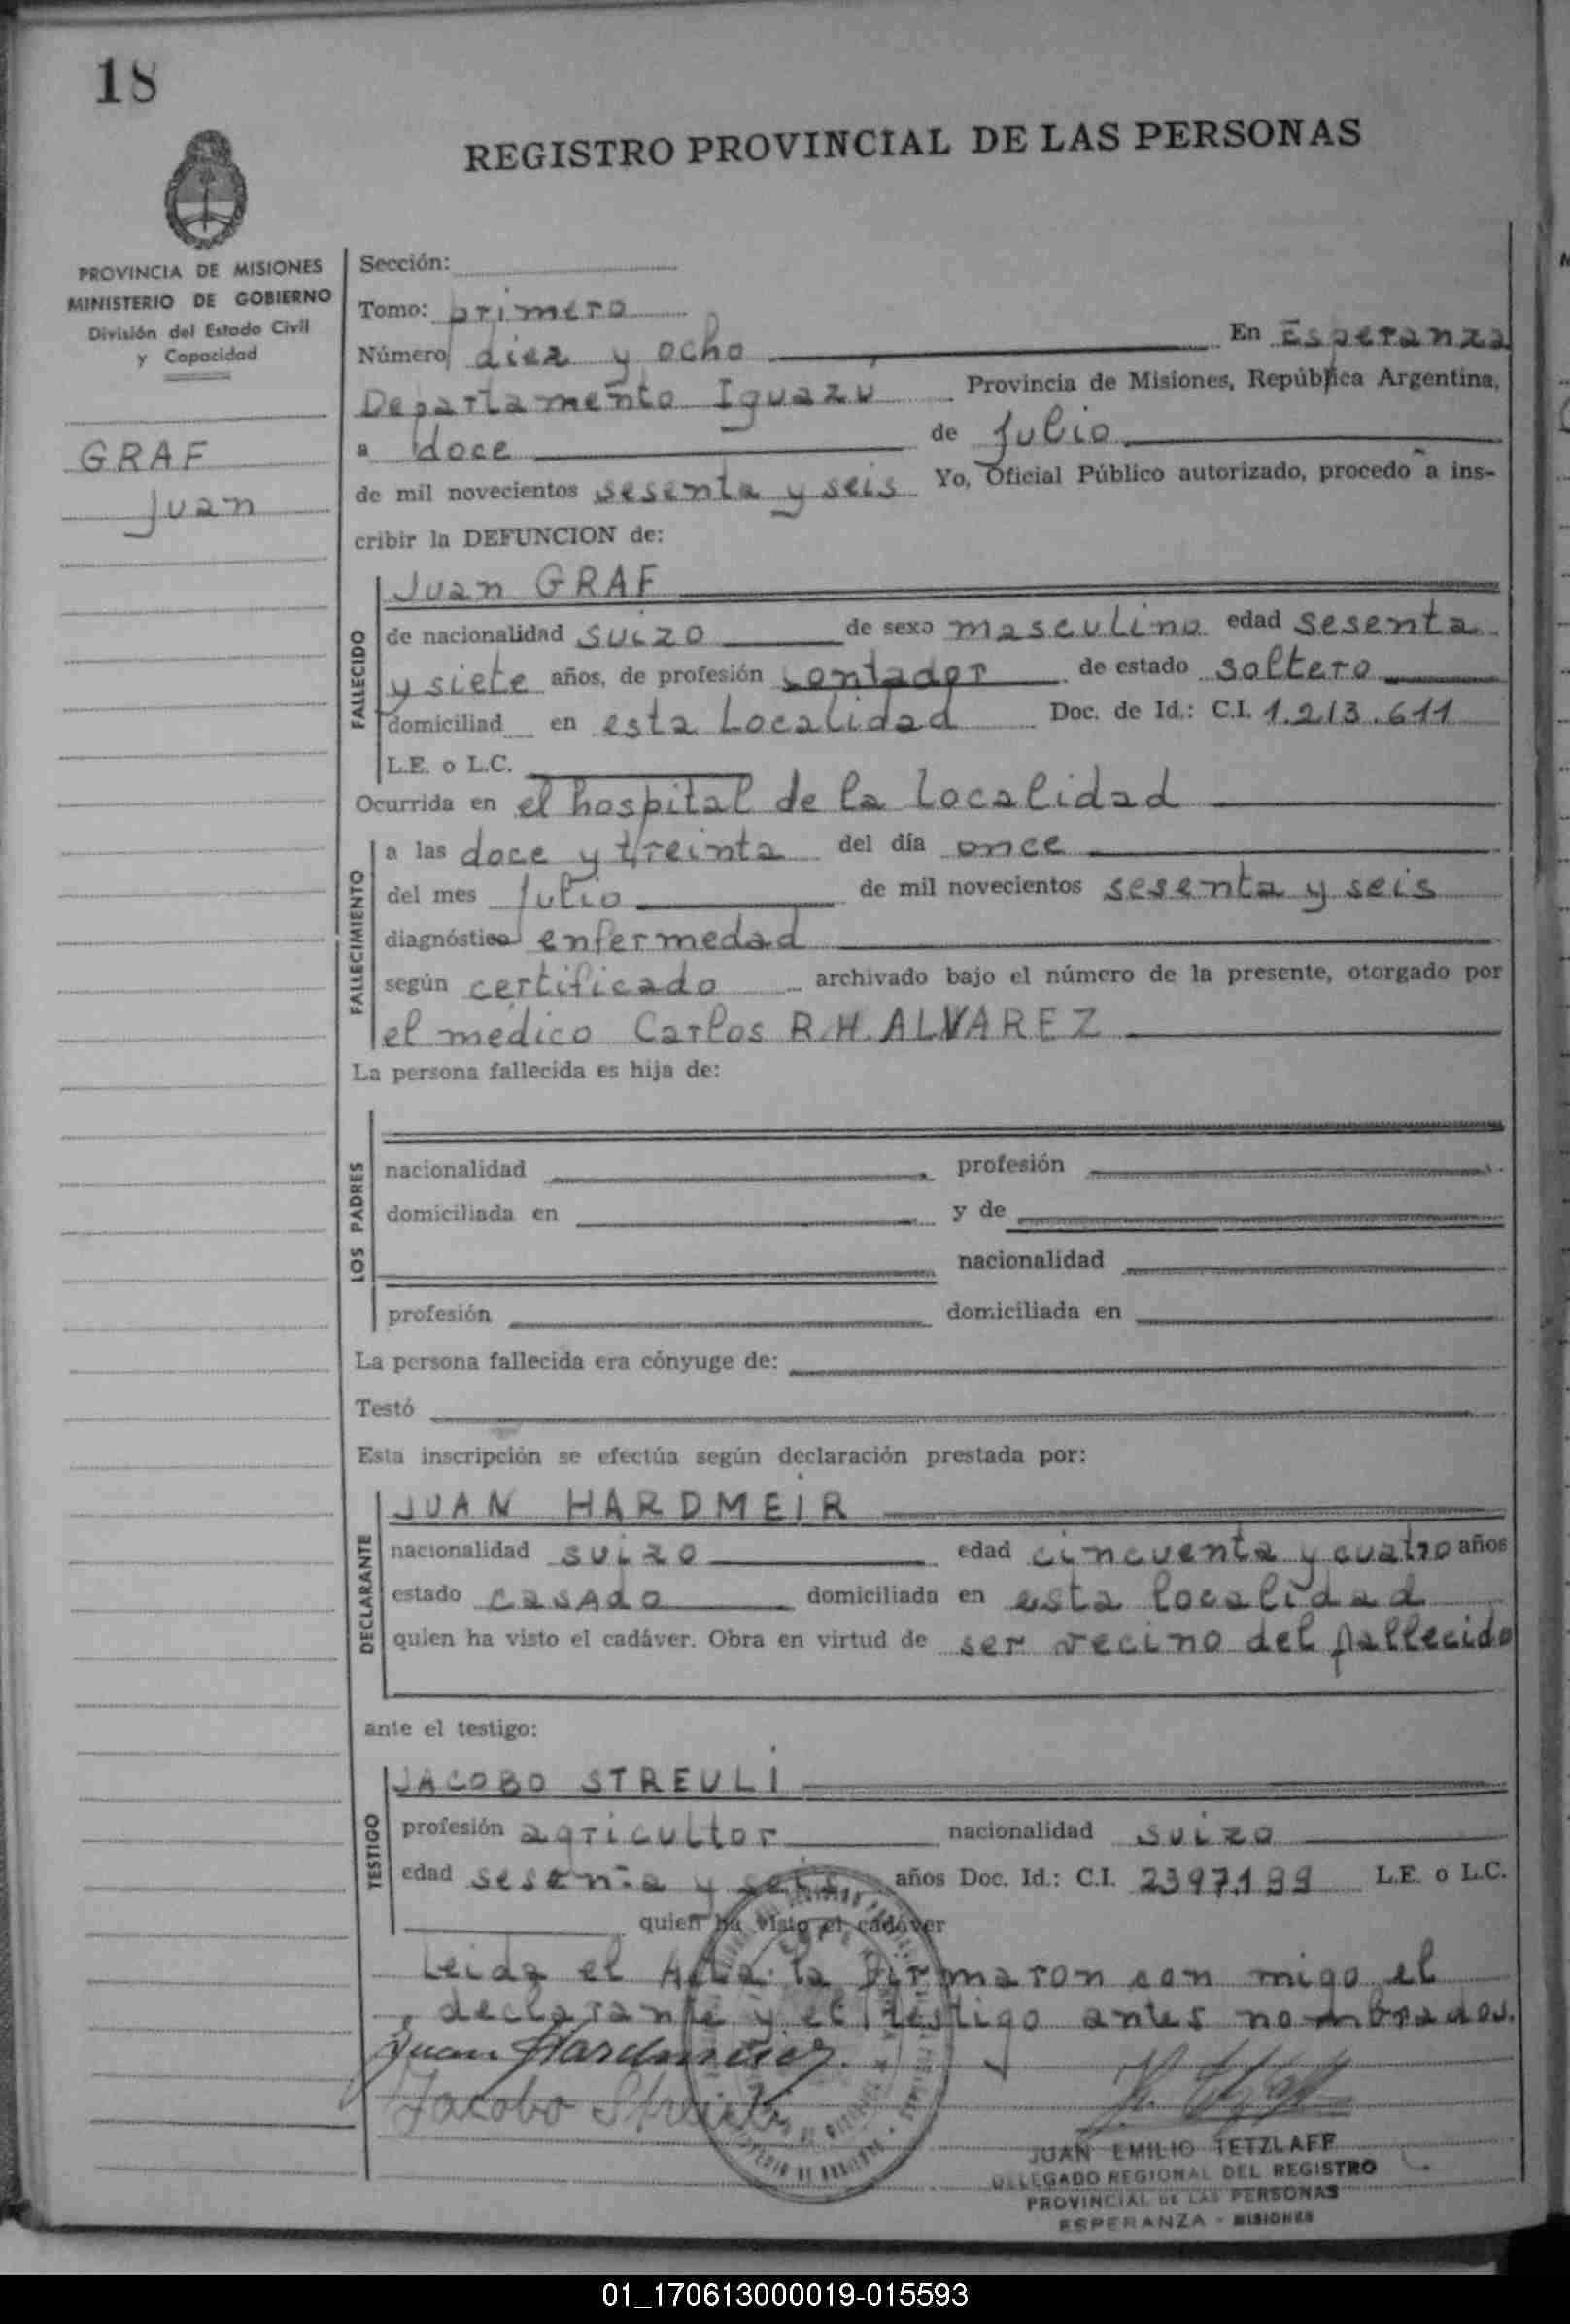 18
REGISTRO PROVINCIAL DE LAS PERSONAS
PROVINCIA DE MISIONES
MINISTERIO DE GOBIERNO
División del Estado Civil
y Capacidad
GRAF
Juan
Sección:
Tomo: primero
Número diez y ocho En Esperanza
Departamento Iguazú Provincia de Misiones, República Argentina,
a doce de Julio
de mil novecientos sesenta y seis Yo, Oficial Público autorizado, procedo a ins-
cribir la DEFUNCION de:
FALLECIDO
Juan GRAF
de nacionalidad suizo de sexo masculino edad sesenta
y siete años, de profesión contador de estado soltero
domiciliad en esta Localidad Doc. de Id.: C.I. 1.213.611
L.E. o L.C.
Ocurrida en el hospital de la localidad
FALLECIMIENTO
a las doce y treinta del día once
del mes Julio de mil novecientos sesenta y seis
diagnóstico enfermedad
según certificado archivado bajo el número de la presente, otorgado por
el médico Carlos R.H. ALVAREZ
La persona fallecida es hija de:
LOS PADRES
nacionalidad profesión
domiciliada en y de
nacionalidad
profesión domiciliada en
La persona fallecida era cónyuge de:
Testó
Esta inscripción se efectúa según declaración prestada por:
DECLARANTE
JUAN HARDMEIR
nacionalidad suizo edad cincuenta y cuatro años
estado casado domiciliada en esta localidad
quien ha visto el cadáver. Obra en virtud de ser vecino del fallecido
ante el testigo:
TESTIGO
JACOBO STREULI
profesión agricultor nacionalidad suizo
edad sesenta y seis años Doc. Id.: C.I. 2397.199 L.E. o L.C.
quien ha visto el cadáver
Leida el Acta la firmaron con migo el
declarante y el testigo antes nombrados.
Juan Hardmeier
Jacobo Streuli
JUAN EMILIO TETZLAFF
DELEGADO REGIONAL DEL REGISTRO
PROVINCIAL DE LAS PERSONAS
ESPERANZA - MISIONES
01_170613000019-015593